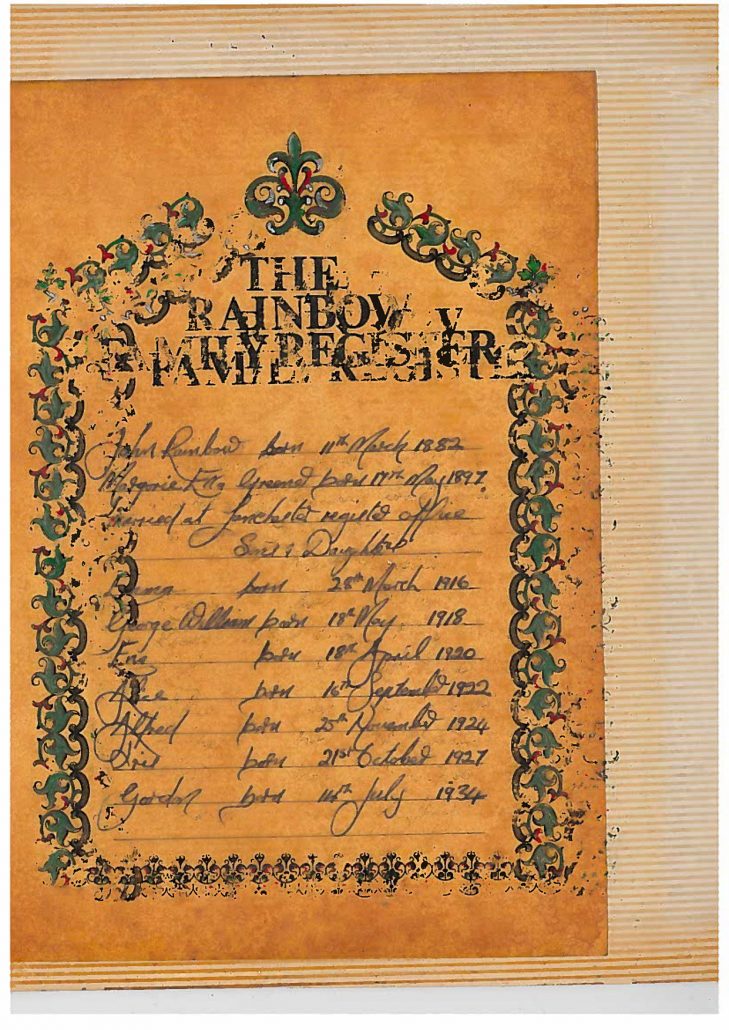 THE
RAINBOW
FAMILY REGISTER
FAMILY REGISTER
John Rainbow born 11th March 1882
Margorie Eva Greened born 17th May 1897.
married at Lanchester register office
Sons & Daughters
born 28th March 1916
George William born 18th May 1918
Eva born 18th April 1920
Alice born 16th September 1922
Alfred born 25th November 1924
Iris born 21st October 1927
Gordon born 14th July 1934